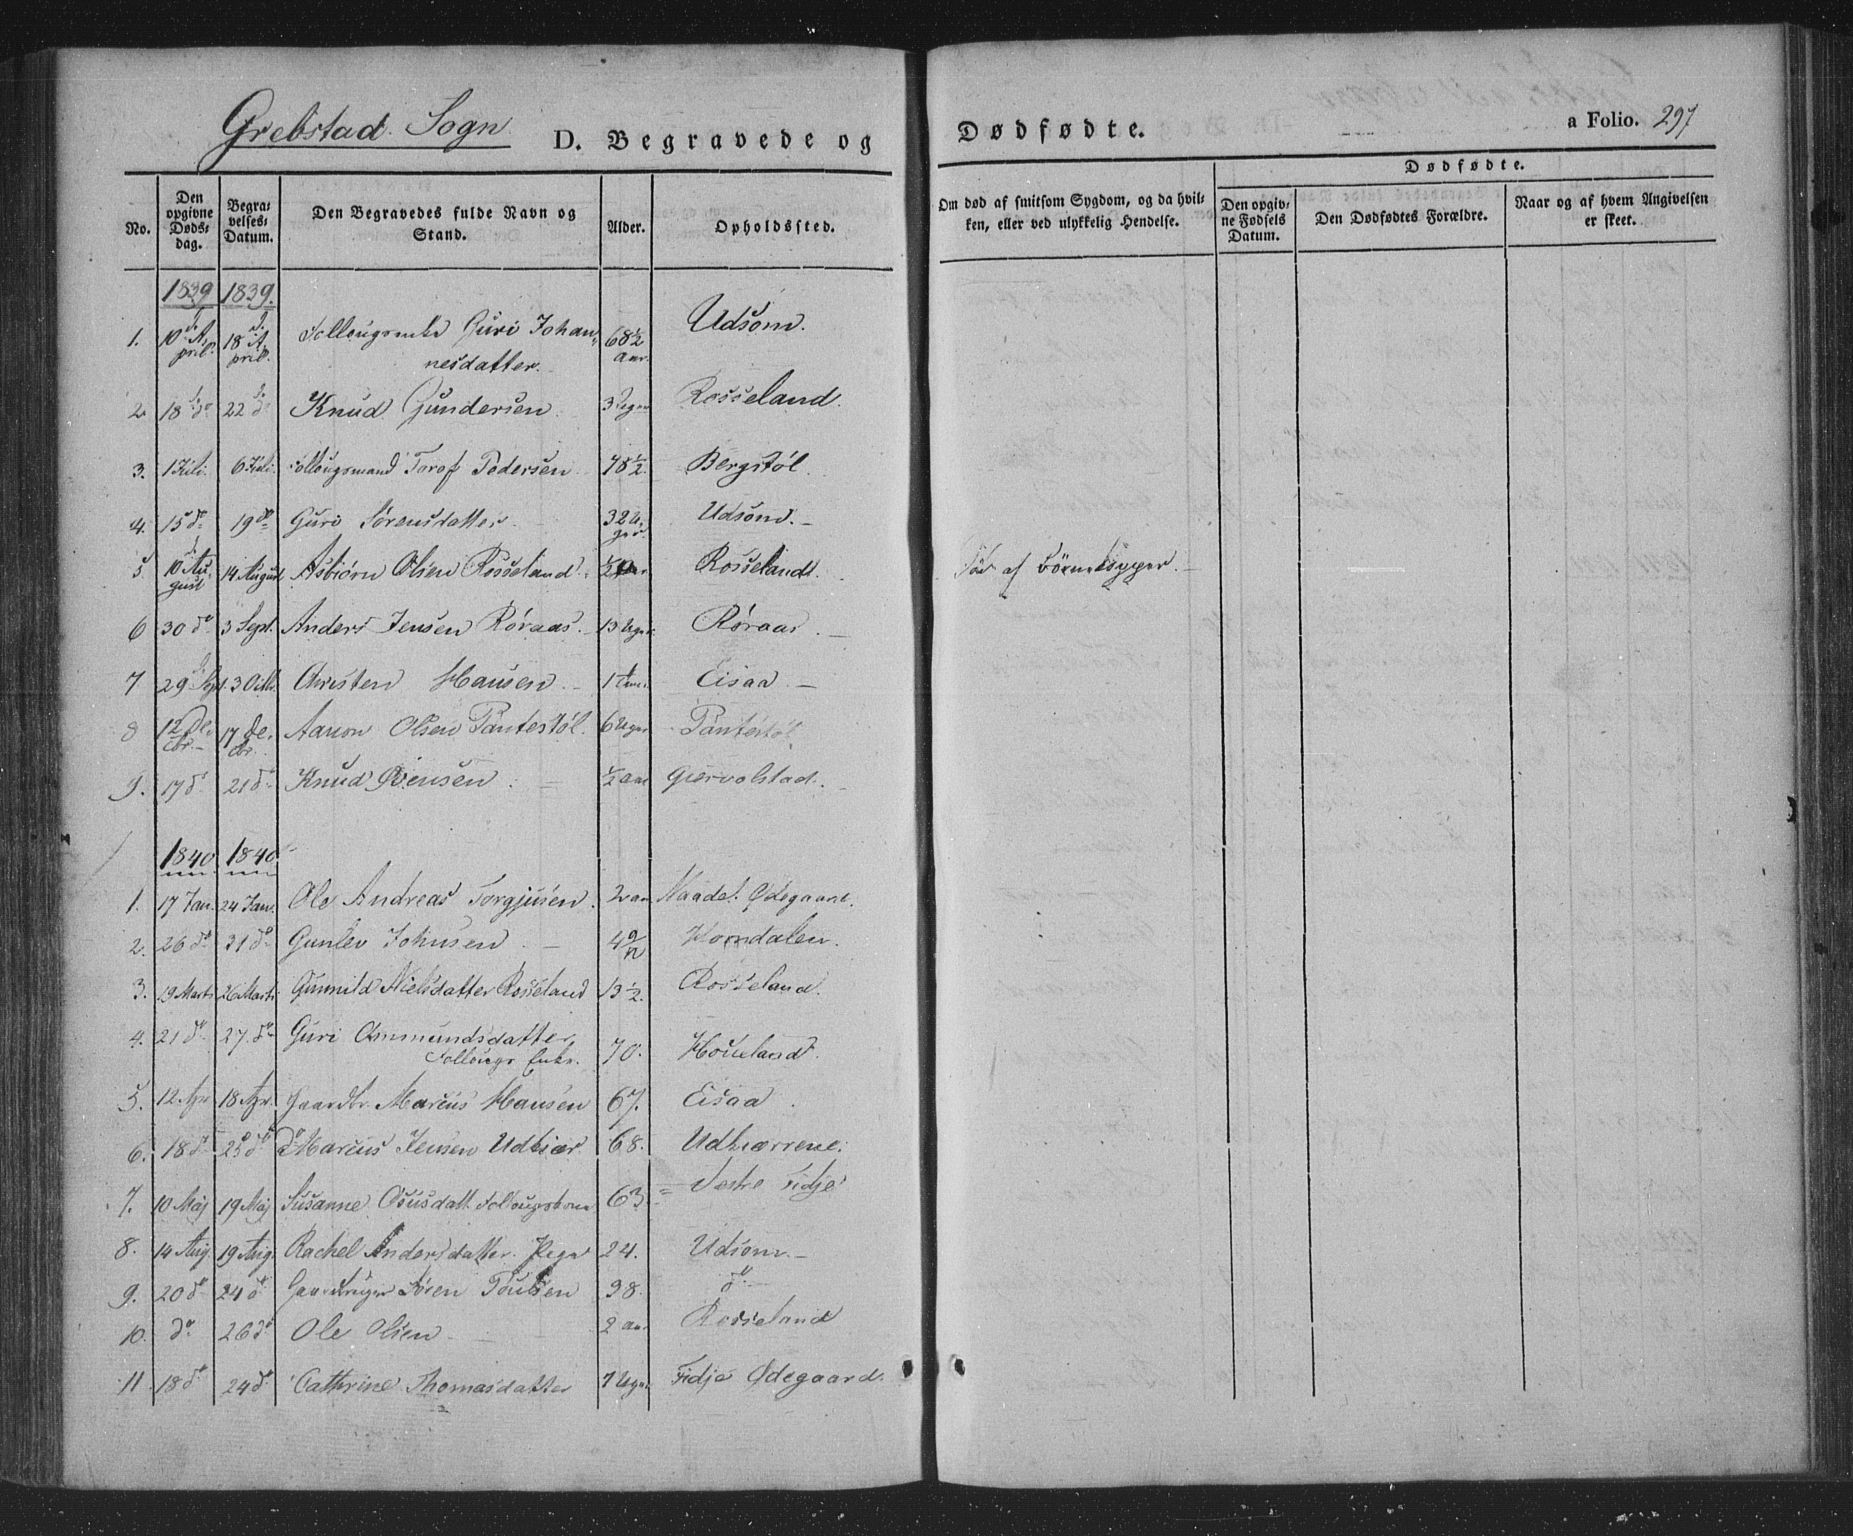 Grebstad Sogn
D. Begravede og
Dødfødte.
a Folio. 297
No.
Den opgivne Døds-dag.
Begra-velses-Datum.
Den Begravedes fulde Navn og Stand.
Alder.
Opholdssted.
Om død af smitsom Sygdom, og da hvil-ken, eller ved ulykkelig Hendelse.
Dødfødte.
Den opgiv-ne Fødsels Datum.
Den Dødfødtes Forældre.
Naar og af hvem Angivelsen er skeet.
1839 1839.
1. 10 April. 18 April. Guri Johan-nesdatter. 68½ Aar. Udsom.
2 18 do 22 do Knud Gundersen 3 Uger Rosseland.
3. 1 Juli. 6 Juli. Follougsmand Torof Pedersen 78½. Bergstøl.
4. 15 do 19 do Guri Sørensdatter. Udsom. —
5 10 August 14 August Asbiørn Olsen Rosseland. Rosseland.
Død af
6 30 do 3 Sept. Anders Jensen Røraas. 13 Uger Røraas. —
7 29 Sept. 3 Octbr. Christen Hansen. — Eisaa. —
8 12 De-cbr. — 17 De-cbr. Aanon Olsen Pantestøl. 6 Uger Pantestøl.
9. 17 do 21 do Knud 1/2 Aar Giervolstad. —
1840 1840
1. 17 Jan. 24 Jan. Ole Andreas Torgjusen. 2 aar Naadel. Ødegaard.
2. 26 do 31 do Gunlev Johnsen. — Homdalen.
3. 19 Marts 26 Marts Gunnild Nielsdatter Rosseland 13½. Rosseland.
4. 21 do 27. do Guri Ommundsdatter 70. Houeland.
5. 12 Apr 18 Apr. Gaardbr. Marcus Hansen 67. Eisaa.
6. 18 do 25 do do Marcus Jensen Udtiær 68. Udtiærrene.
7. 10 Maj 19 Maj Susanne Osusdatt. 63 Vestre Fidje
8. 14 Aug. 19 Aug. Rachel Andersdatter. Pige 24. Udsom. —
9. 20 do 24 do Gaardbruger Søren Poulsen 38. do —
10. do. 26 do Ole Olsen — 2 aar Rosseland
11 18 do 24 do Cathrine Thomasdatter 7 Uger Fidje Ødegaard.